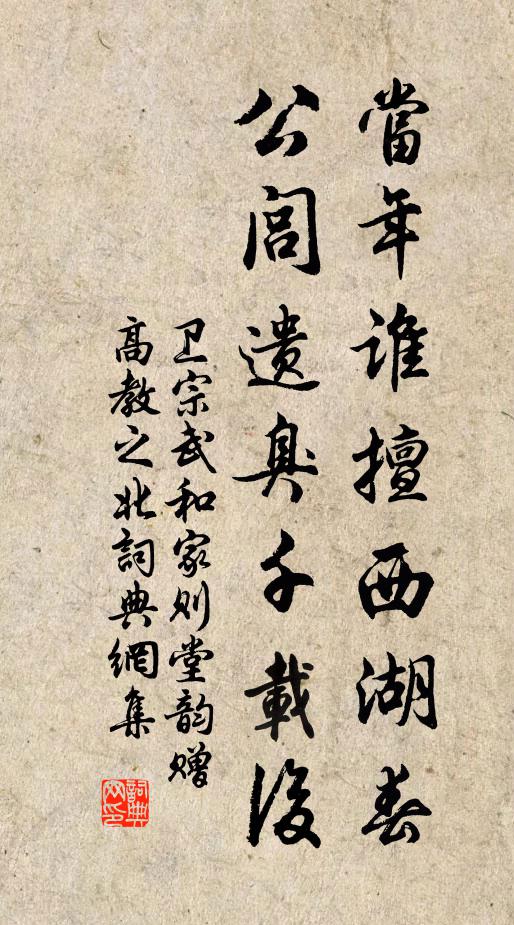 當年誰擅西湖春
公閭遺臭千載後
卫宗武和家则堂韵赠
高教之北詞典網集
詞典網印